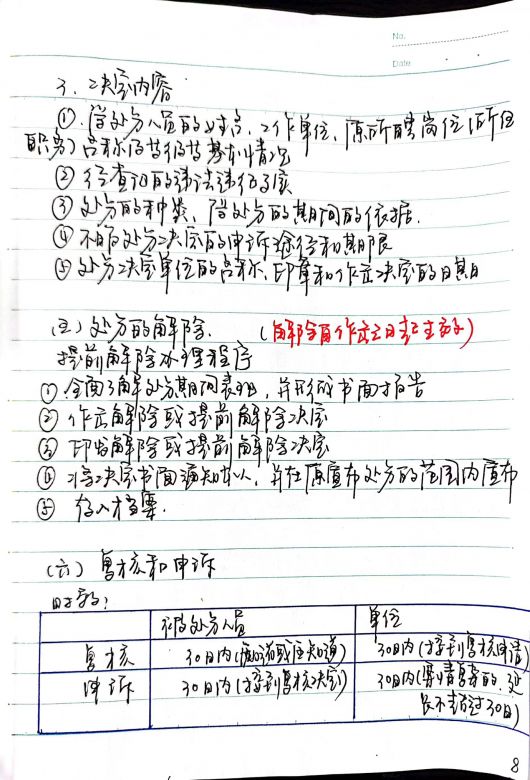 No.
Date
3、决定内容
① 受处分人员的姓名、工作单位、原所聘岗位(所任
职务)名称及等级等基本情况
② 经查证的违法违纪事实
③ 处分的种类、受处分的期间的依据.
④ 不服处分决定的申诉途径和期限
⑤ 处分决定单位的名称、印章和作出决定的日期
(五)处分的解除. (解除自作出之日起生效)
提前解除办理程序
① 全面了解处分期间表现,并形成书面报告
② 作出解除或提前解除决定
③ 印发解除或提前解除决定
④ 将决定书面通知本人,并在原宣布处分的范围内宣布
⑤ 存入档案.
(六)复核和申诉
时效:
被处分人员 单位
复核 30日内(知道或应知道) 30日内(接到复核申请)
申诉 30日内(接到复核决定) 30日内(案情复杂的,延
长不超过30日)
8